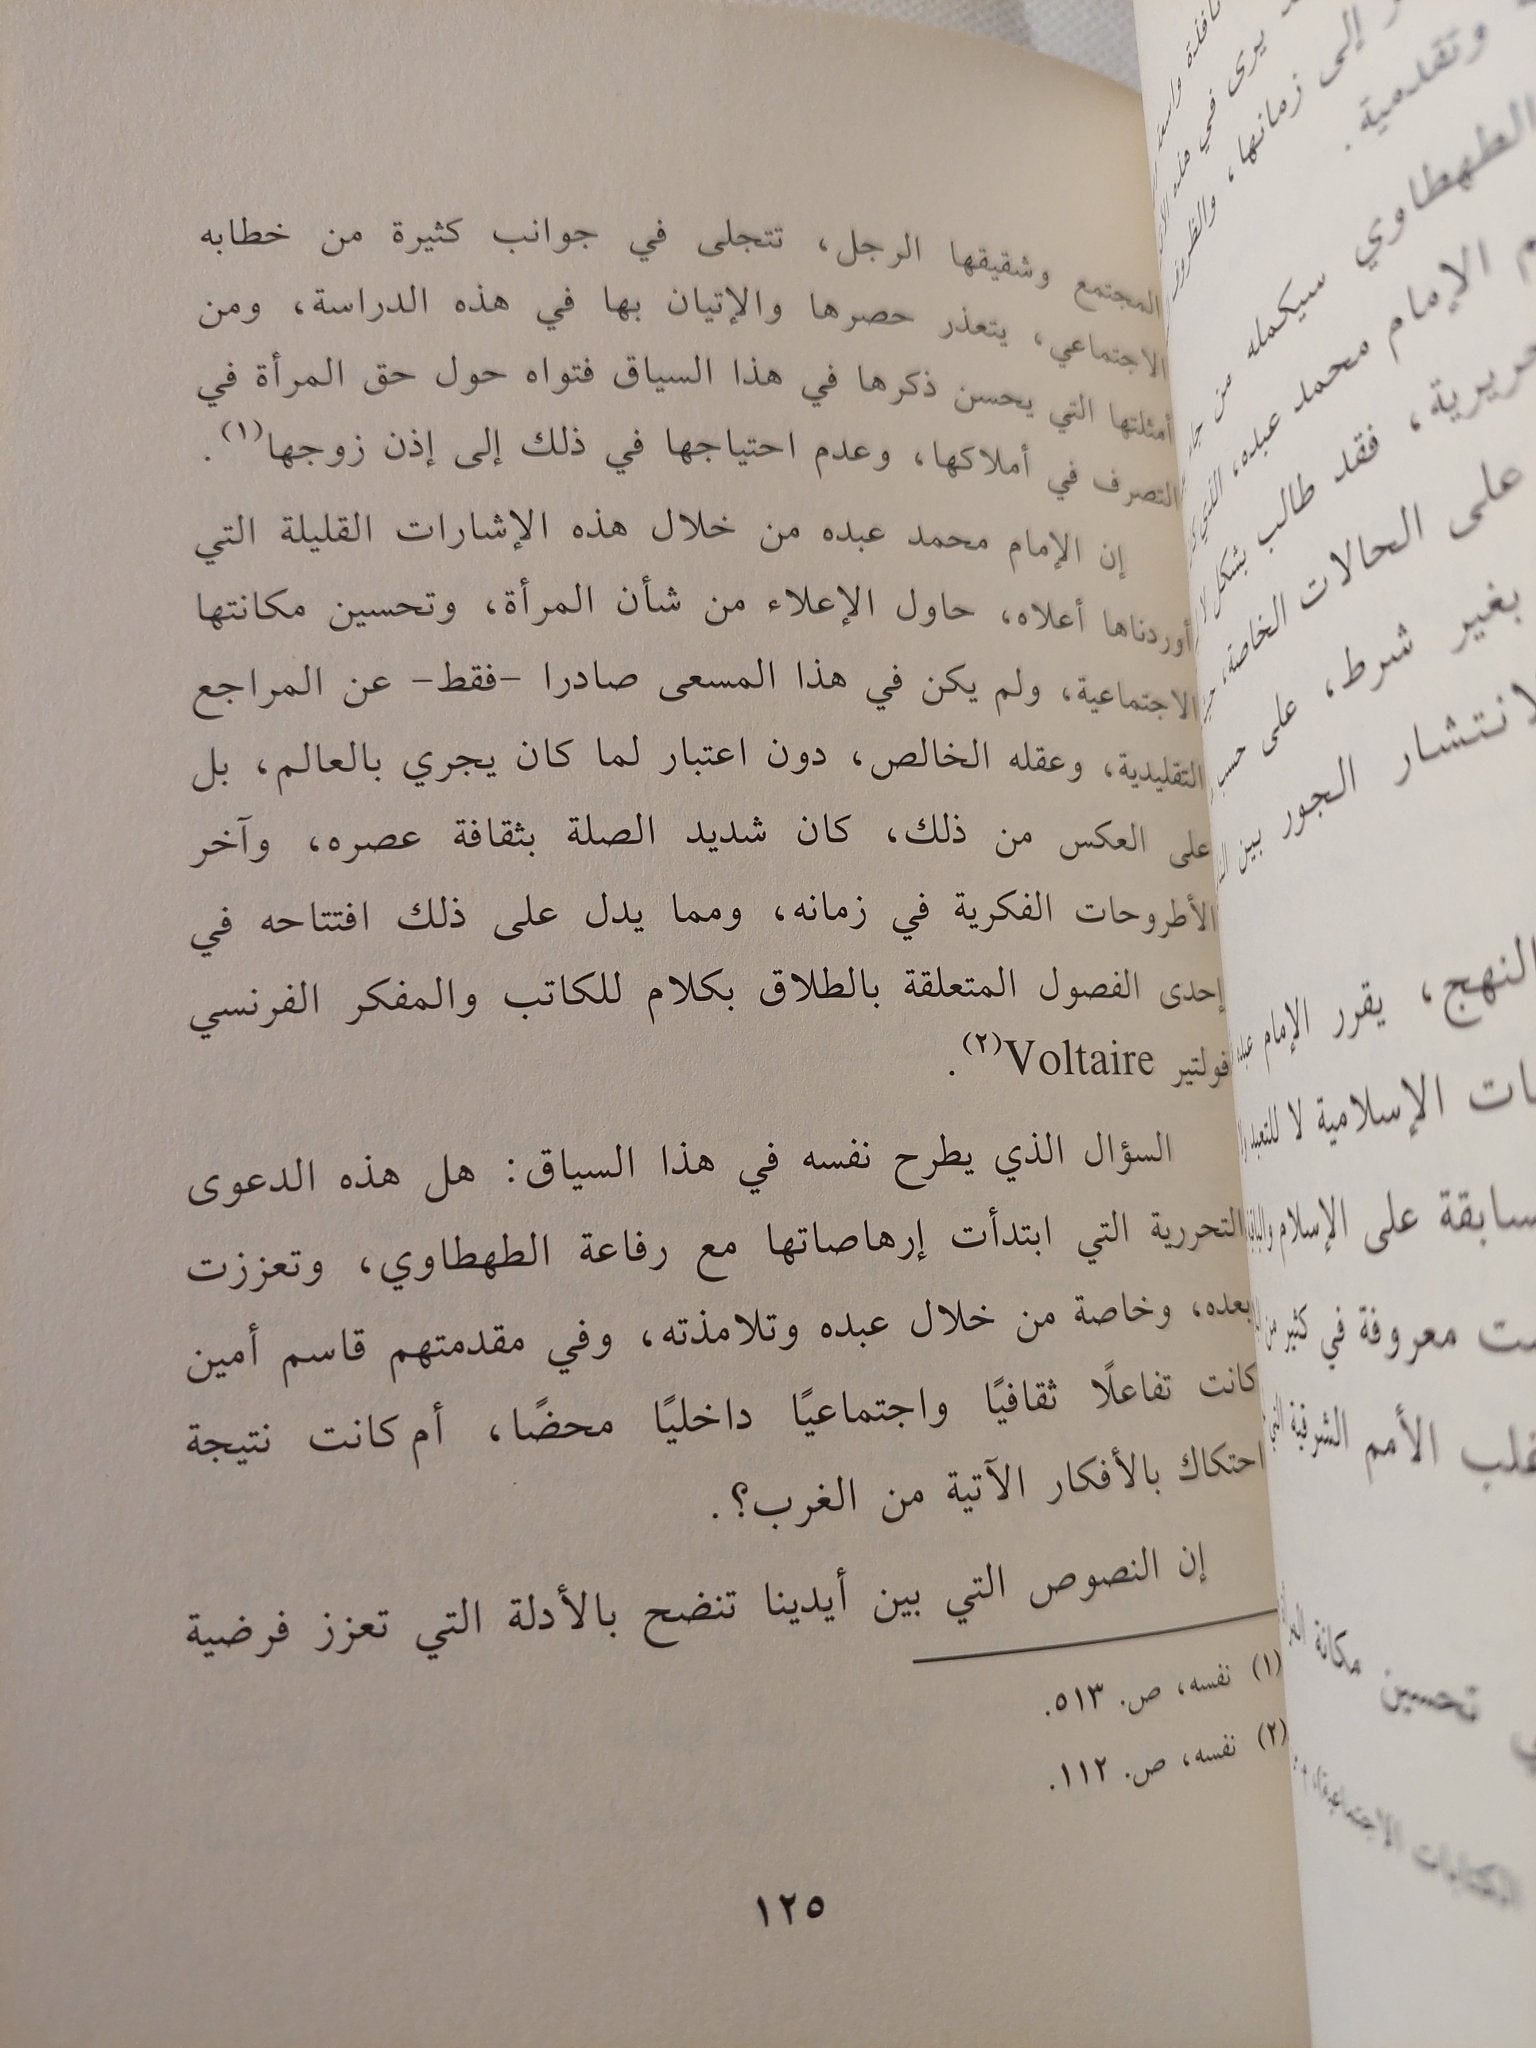 المجتمع وشقيقها الرجل، تتجلى في جوانب كثيرة من خطابه
الاجتماعي، يتعذر حصرها والإتيان بها في هذه الدراسة، ومن
أمثلتها التي يحسن ذكرها في هذا السياق فتواه حول حق المرأة في
التصرف في أملاكها، وعدم احتياجها في ذلك إلى إذن زوجها(١).
إن الإمام محمد عبده من خلال هذه الإشارات القليلة التي
أوردناها أعلاه، حاول الإعلاء من شأن المرأة، وتحسين مكانتها
الاجتماعية، ولم يكن في هذا المسعى صادرا –فقط– عن المراجع
التقليدية، وعقله الخالص، دون اعتبار لما كان يجري بالعالم، بل
على العكس من ذلك، كان شديد الصلة بثقافة عصره، وآخر
الأطروحات الفكرية في زمانه، ومما يدل على ذلك افتتاحه في
إحدى الفصول المتعلقة بالطلاق بكلام للكاتب والمفكر الفرنسي
فولتير Voltaire(٢).
السؤال الذي يطرح نفسه في هذا السياق: هل هذه الدعوى
التحررية التي ابتدأت إرهاصاتها مع رفاعة الطهطاوي، وتعززت
بعده، وخاصة من خلال عبده وتلامذته، وفي مقدمتهم قاسم أمين
كانت تفاعلًا ثقافيًا واجتماعيًا داخليًا محضًا، أم كانت نتيجة
احتكاك بالأفكار الآتية من الغرب؟.
إن النصوص التي بين أيدينا تنضح بالأدلة التي تعزز فرضية
(١) نفسه، ص. ٥١٣.
(٢) نفسه، ص. ١١٢.
١٢٥
يرى في هذه
إلى زمانها، والظروف
وتقدمية.
الطهطاوي سيكمله من
الإمام محمد عبده، الذي
فقد طالب بشكل
على الحالات الخاصة،
بغير شرط، على حسب
لانتشار الجور بين
النهج، يقرر الإمام عبده
الإسلامية لا
سابقة على الإسلام
معروفة في كثير من
الأمم الشرقية التي
تحسين مكانة